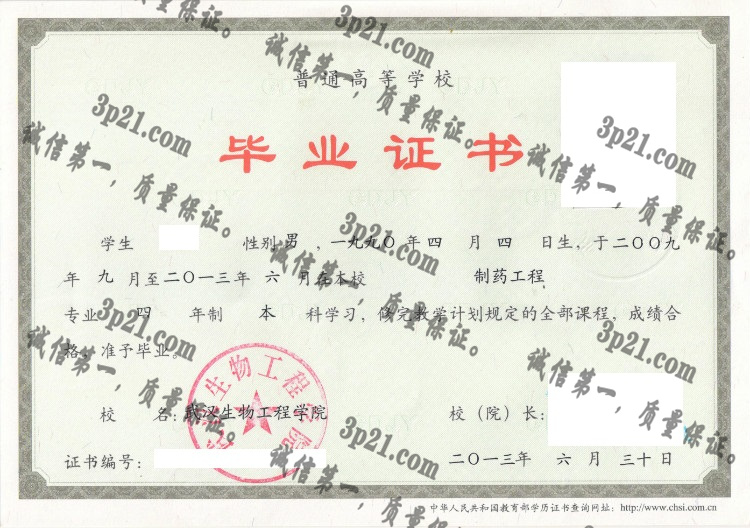 普通高等学校
毕业证书
学生 性别 男 ，一九九〇 年 四 月 四 日生，于二〇〇九
年 九 月至二〇一三年 六 月在本校 制药工程
专业 四 年制 本 科学习，修完教学计划规定的全部课程，成绩合
格，准予毕业。
校 名：武汉生物工程学院 校（院）长：
证书编号： 二〇一三年 六 月 三十 日
中华人民共和国教育部学历证书查询网址：http://www.chsi.com.cn
武汉生物工程学院
3p21.com
诚信第一，质量保证。
3p21.com
诚信第一，质量保证。
3p21.com
诚信第一，质量保证。
3p21.com
诚信第一，质量保证。
3p21.com
诚信第一，质量保证。
3p21.com
诚信第一，质量保证。
3p21.com
诚信第一，质量保证。
3p21.com
诚信第一，质量保证。
3p21.com
诚信第一，质量保证。